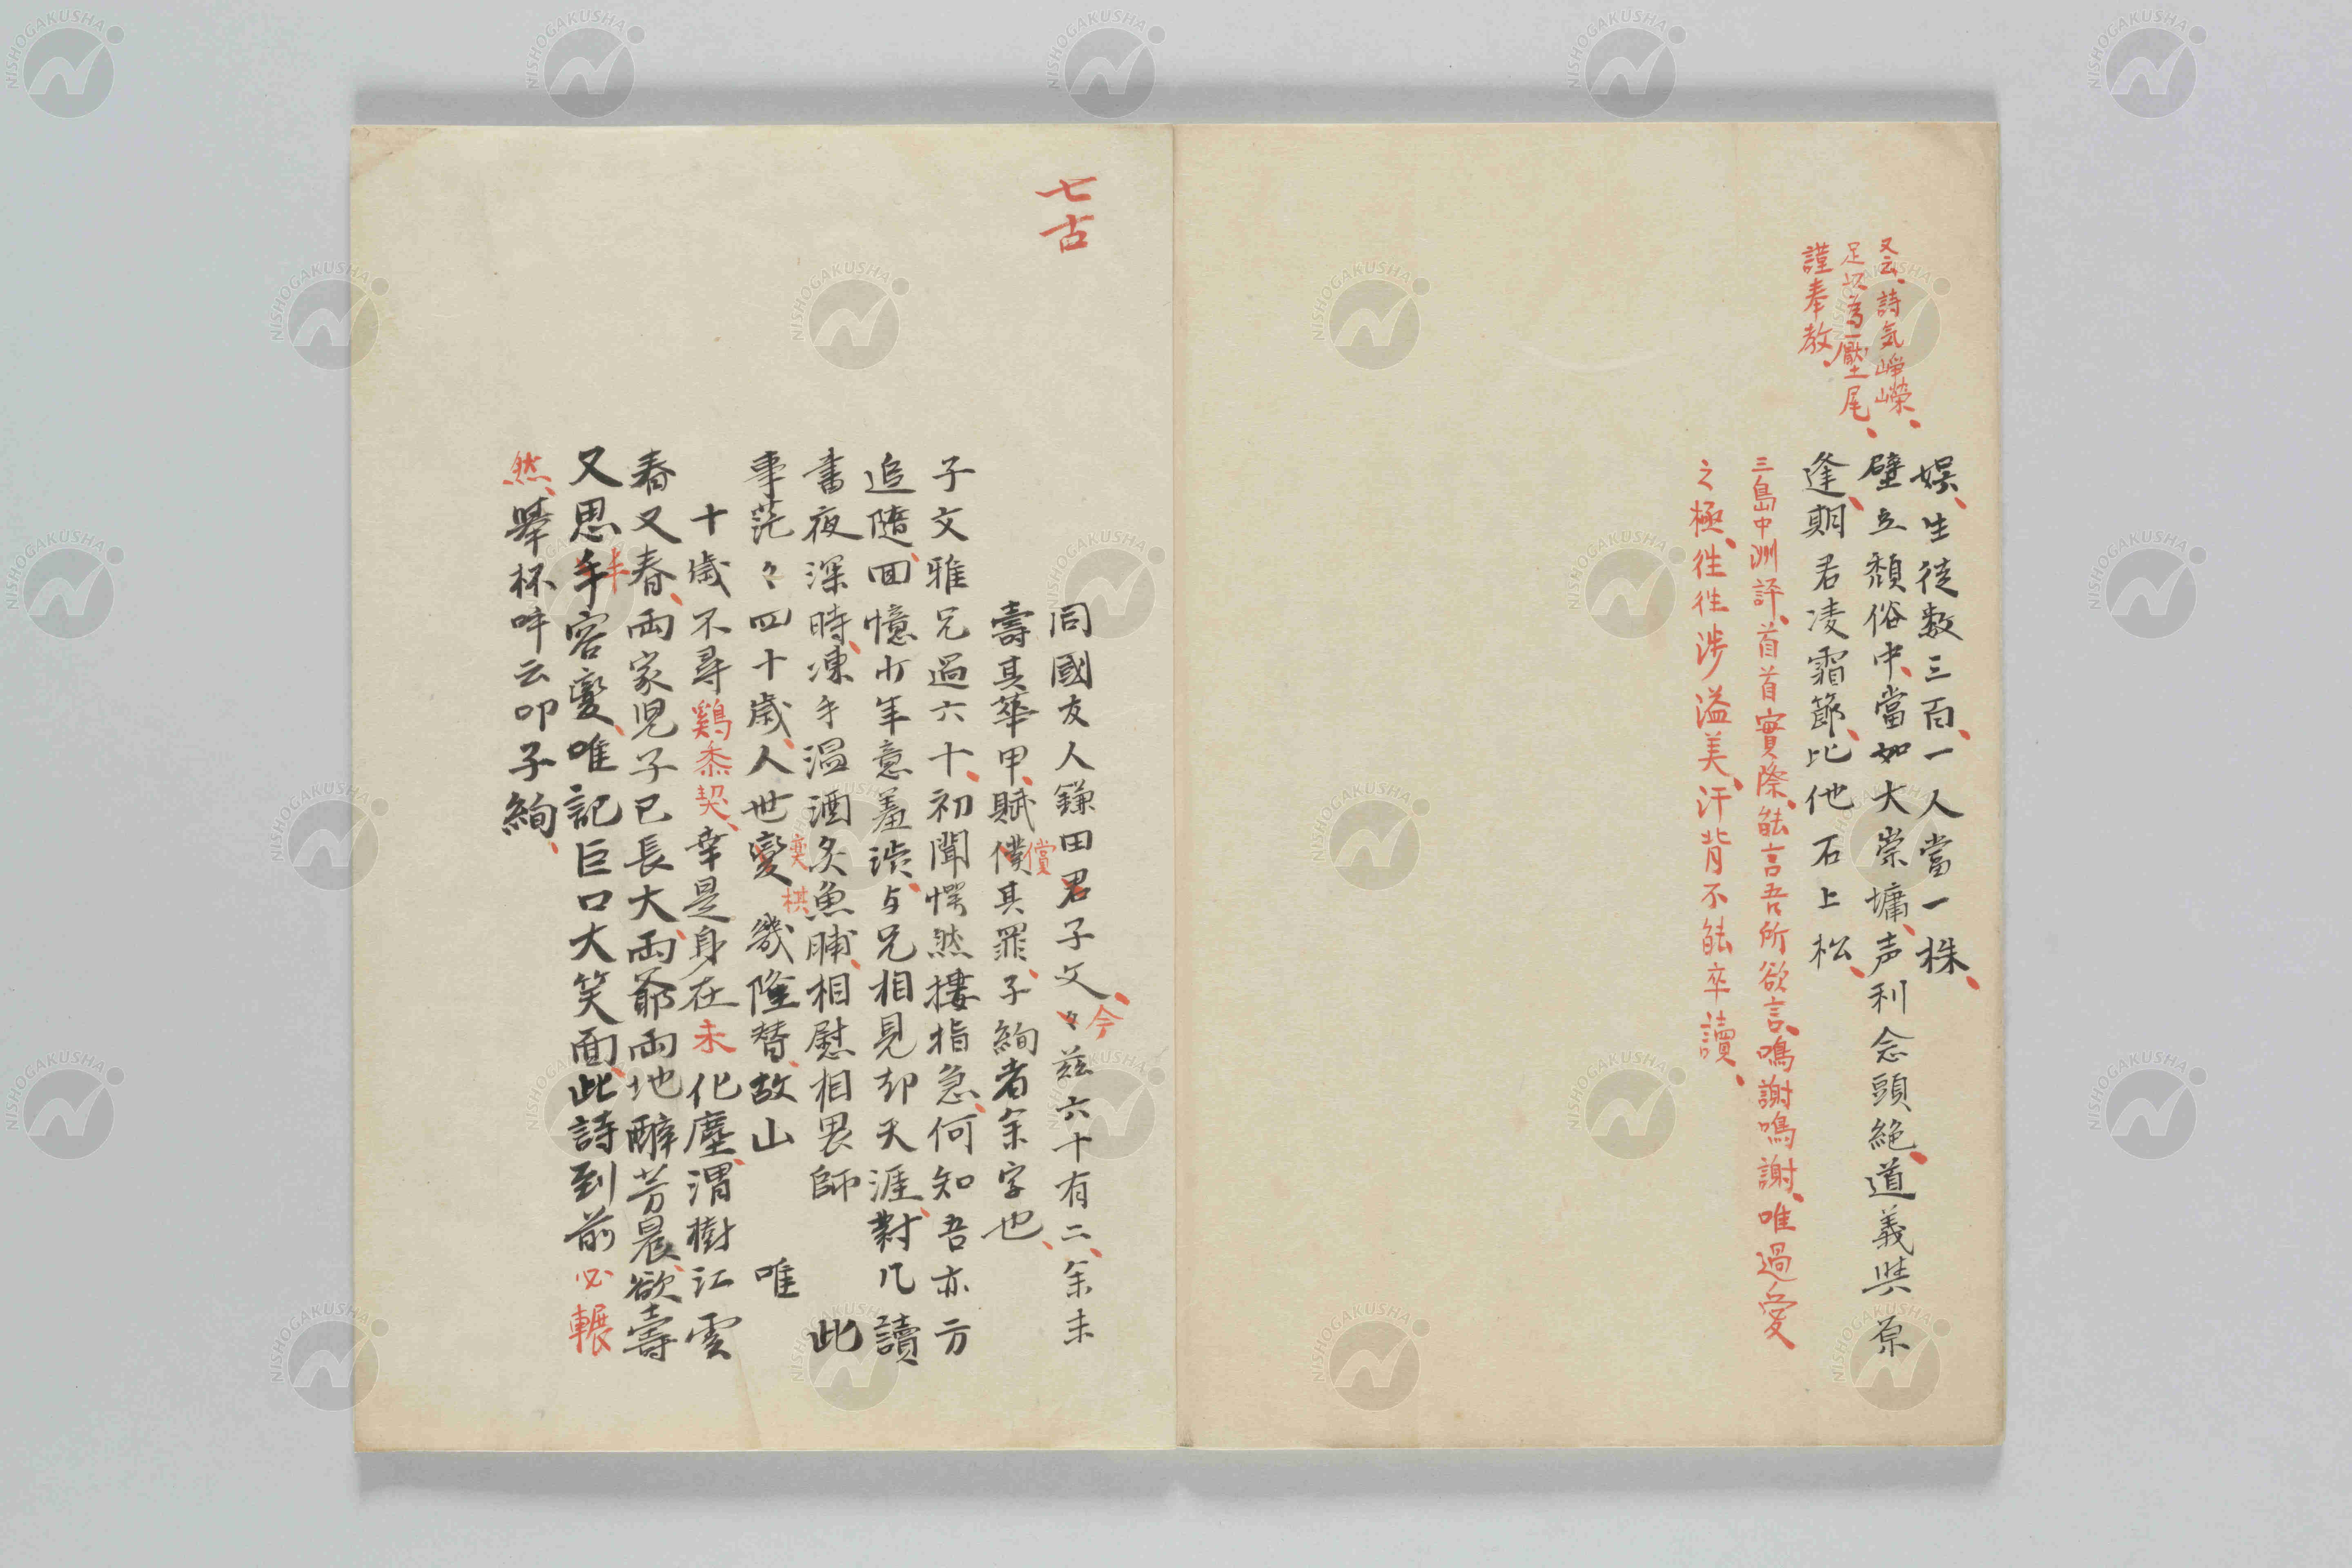 又云、詩気崢嶸、
足以為一壓尾、
謹奉教、
娯、生徒数三百、一人當一株、
壁立頽俗中、當如大崇墉、声利念頭絶、道義與原
逢、期君凌霜節、比他石上松、
三島中洲評、首首實際、能言吾所欲言、鳴謝鳴謝、唯過愛
之極、往往渉溢美、汗背不能卒讀、
七古
同國友人鎌田君子文、々今茲六十有二、余未
壽其華甲、賦償僕其罪、子絢者余字也、
子文雅兄過六十、初聞愕然摟指急、何知吾亦方
追随、回憶少年意羞渋、与兄相見却天涯、對几讀
書夜深時、凍手温酒炙魚脯、相慰相畏師 此
事茫々四十歳、人世變奕棋幾隆替、故山 唯
十歳不尋鷄黍契、幸是身在未化塵、渭樹江雲
春又春、両家児子已長大、両爺両地醉芳晨、欲壽
又思手半容變、唯記巨口大笑面、此詩到前必囅
然、擧杯呼云叩子絢、
NISHOGAKUSHA